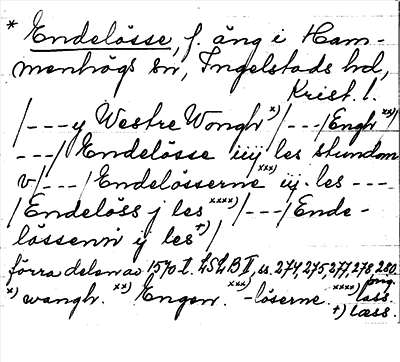 * Endelösse, f. äng i Ham-
menhögs sn, Ingelstads hd,
Krist. l.
/---y Westre Wongh x)/---/Engh xx)/
---/ Endelösse iiij les stundom
v/---/Endelösserne xxx) iij les ---
/Endelöss j les xxxx)/---/Ende-
lössenn ij les +)/
förra delen av 1570 I. LSLB II, ss. 274, 275, 277, 278, 280.
x) wangh. xx) Engen. xxx) -löserne. xxxx) lass.
+) læss.